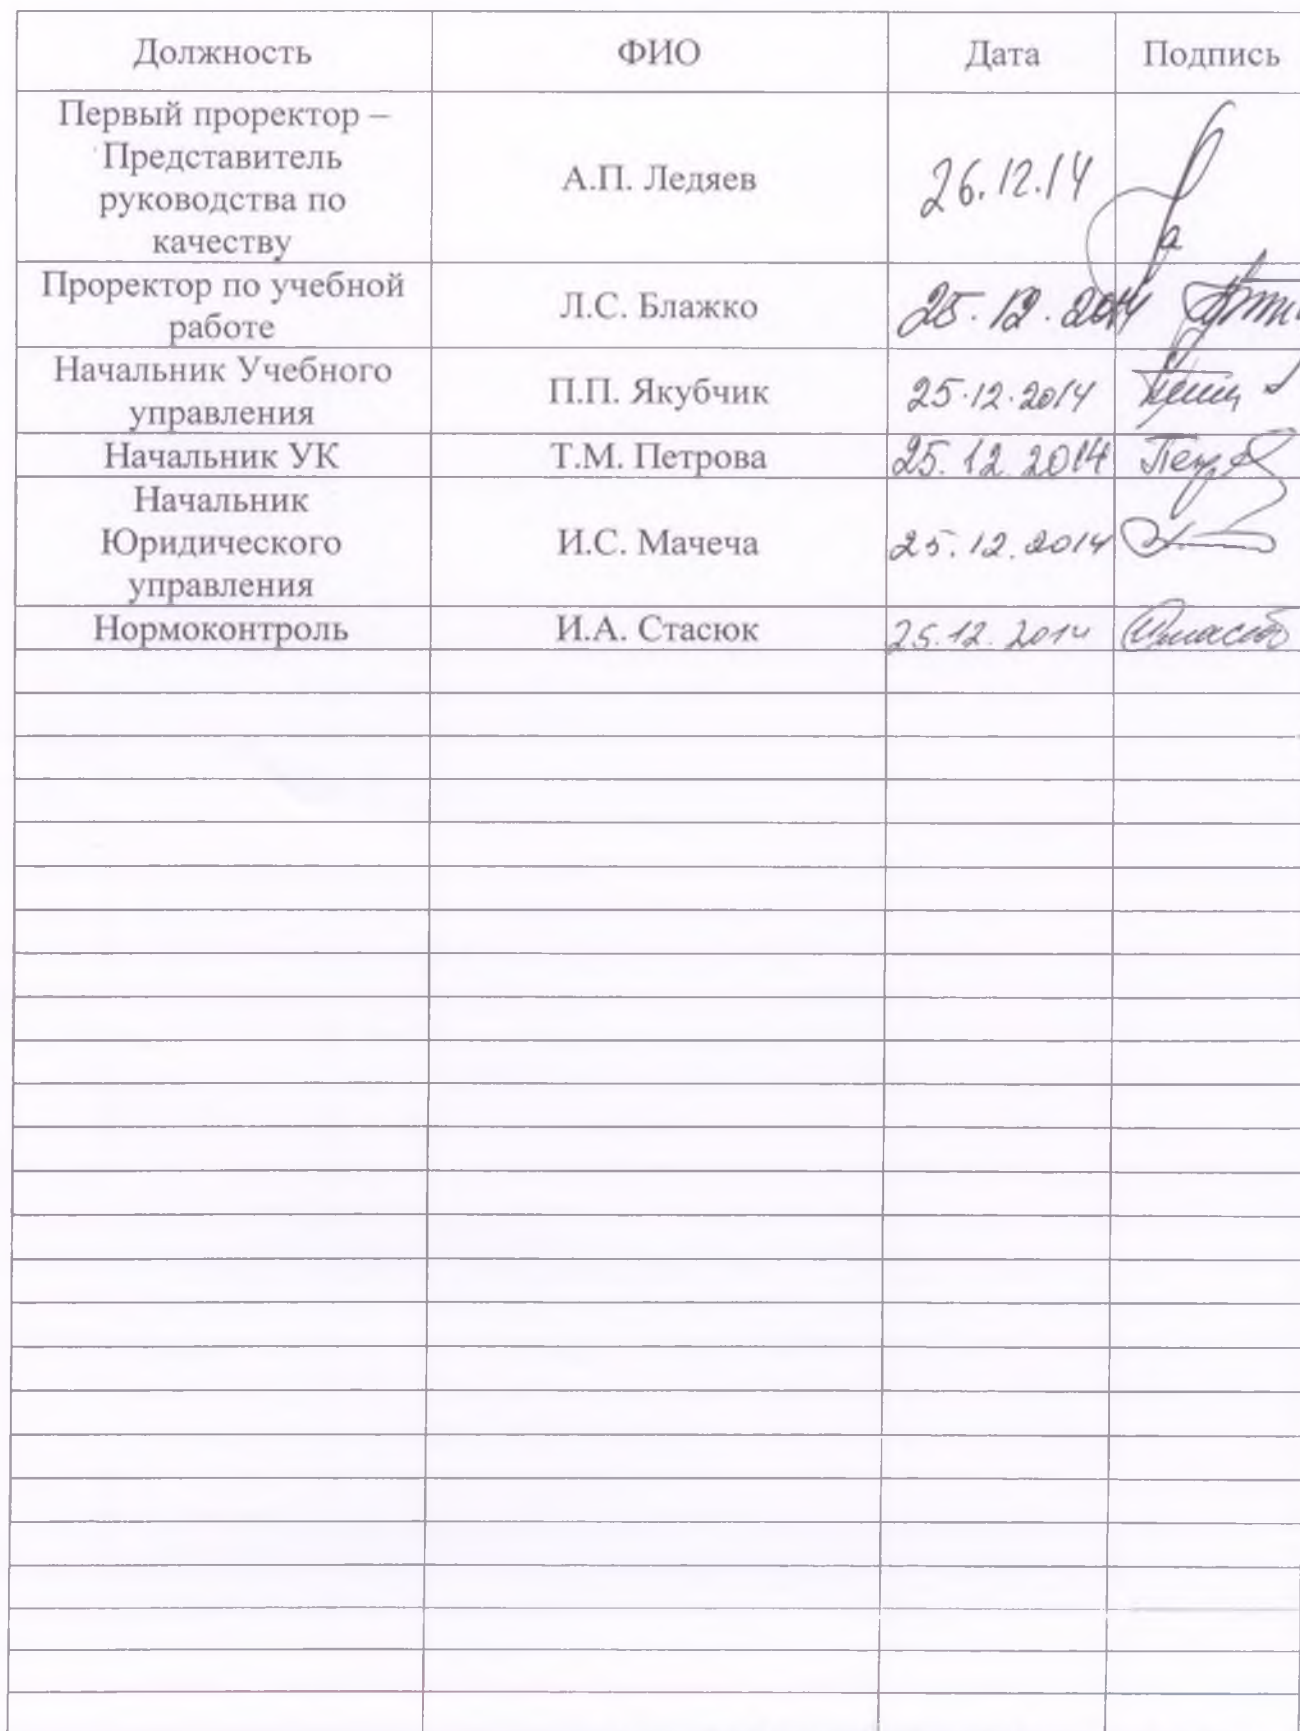 Должность ФИО Дата Подпись
Первый проректор –
Представитель
руководства по
качеству
А.П. Ледяев 26.12.14
Проректор по учебной
работе
Л.С. Блажко 25.12.2014
Начальник Учебного
управления
П.П. Якубчик 25.12.2014
Начальник УК Т.М. Петрова 25.12.2014
Начальник
Юридического
управления
И.С. Мачеча 25.12.2014
Нормоконтроль И.А. Стасюк 25.12.2014